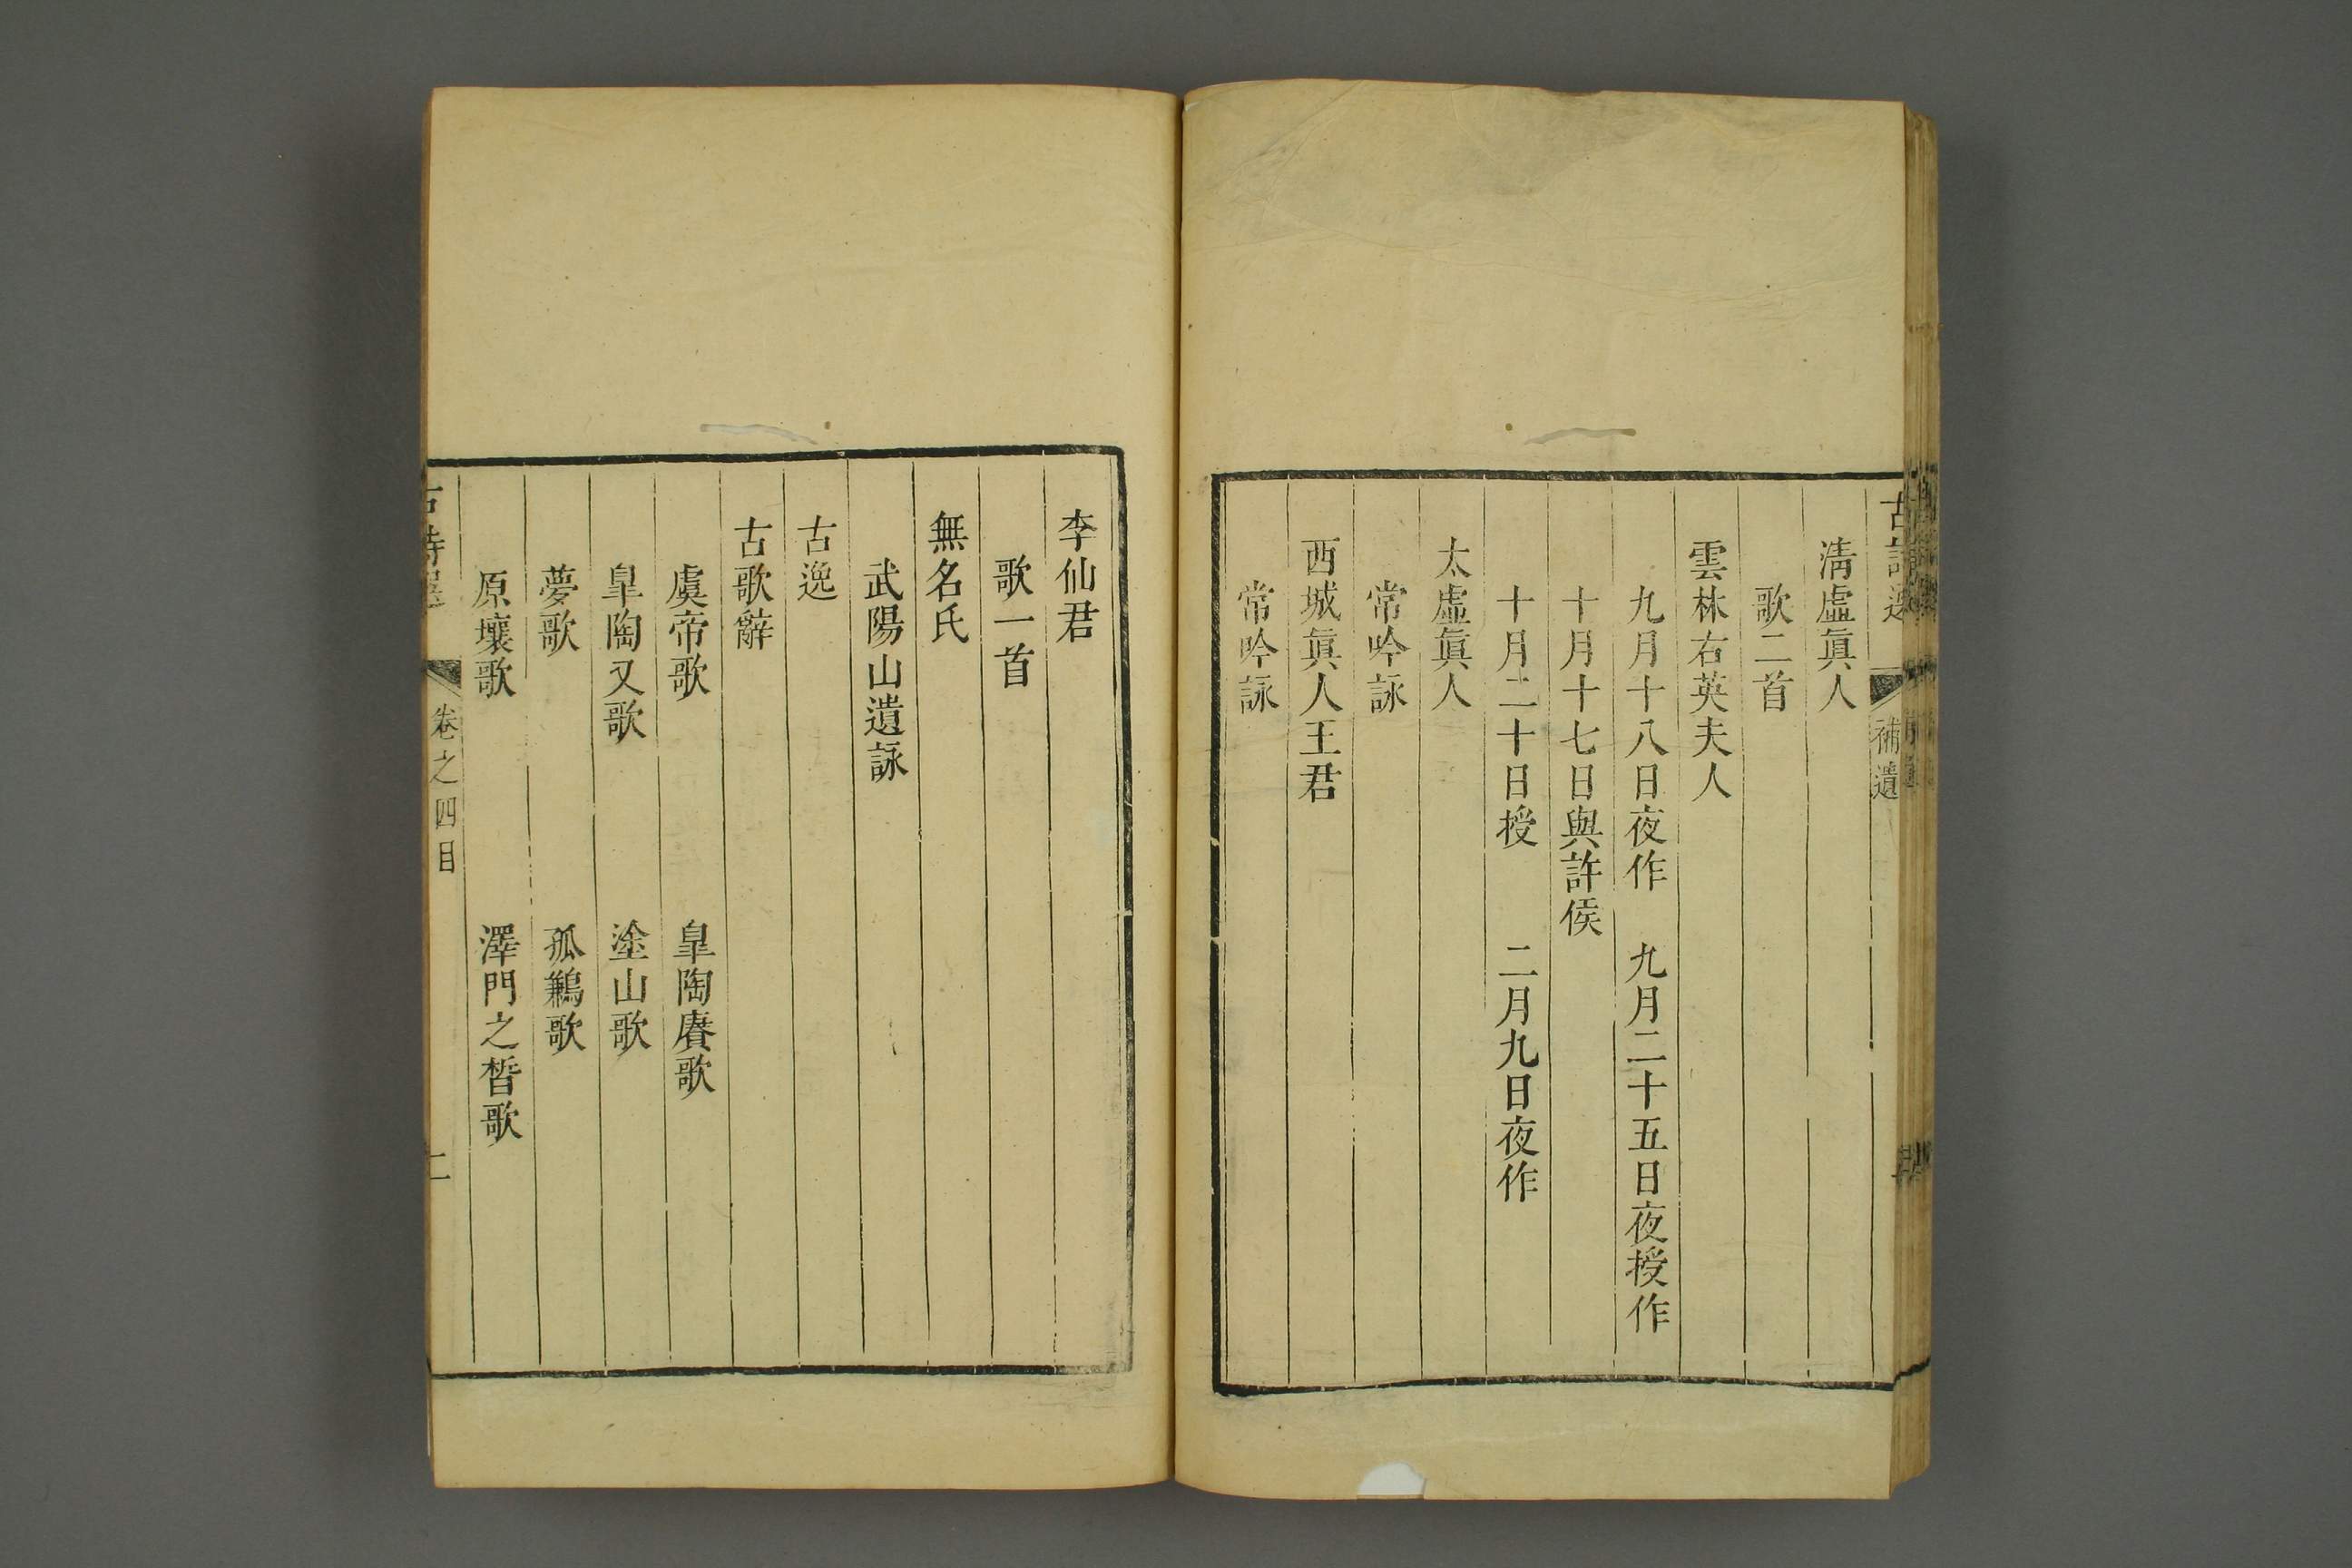 補遺
清虛眞人
歌二首
雲林右英夫人
九月十八日夜作　九月二十五日夜授作
十月十七日與許侯
十月二十日授　二月九日夜作
太虛眞人
常吟詠
西城眞人王君
常吟詠
李仙君
歌一首
無名氏
武陽山遺詠
古逸
古歌辭
虞帝歌　皐陶賡歌
皐陶又歌　塗山歌
夢歌　孤鶼歌
原壤歌　澤門之晳歌
卷之四目